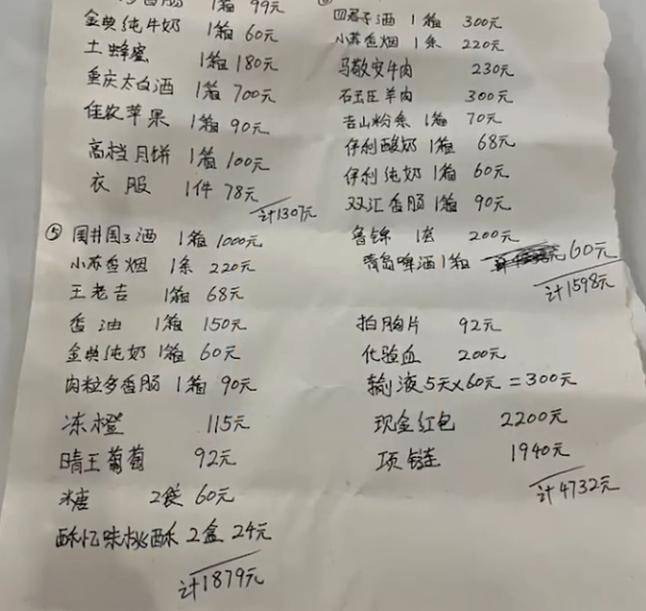 香肠 1箱 99元
金典纯牛奶 1箱 60元
土蜂蜜 1箱 180元
重庆太白酒 1箱 700元
佳农苹果 1箱 90元
高档月饼 1箱 100元
衣服 1件 78元
计1307元
⑤ 国井国3酒 1箱 1000元
小苏香烟 1条 220元
王老吉 1箱 68元
香油 1箱 150元
金典纯奶 1箱 60元
肉粒多香肠 1箱 90元
冻橙 115元
晴王葡萄 92元
冰糖 2袋 60元
酥忆味桃酥 2盒 24元
计1879元
四君子酒 1箱 300元
小苏香烟 1条 220元
马敬安牛肉 230元
石玉臣羊肉 300元
吉山粉条 1箱 70元
伊利酸奶 1箱 68元
伊利纯奶 1箱 60元
双汇香肠 1箱 90元
鲁锦 1套 200元
青岛啤酒 1箱 60元
计1598元
拍胸片 92元
化验血 200元
输液5天×60元=300元
现金红包 2200元
项链 1940元
计4732元